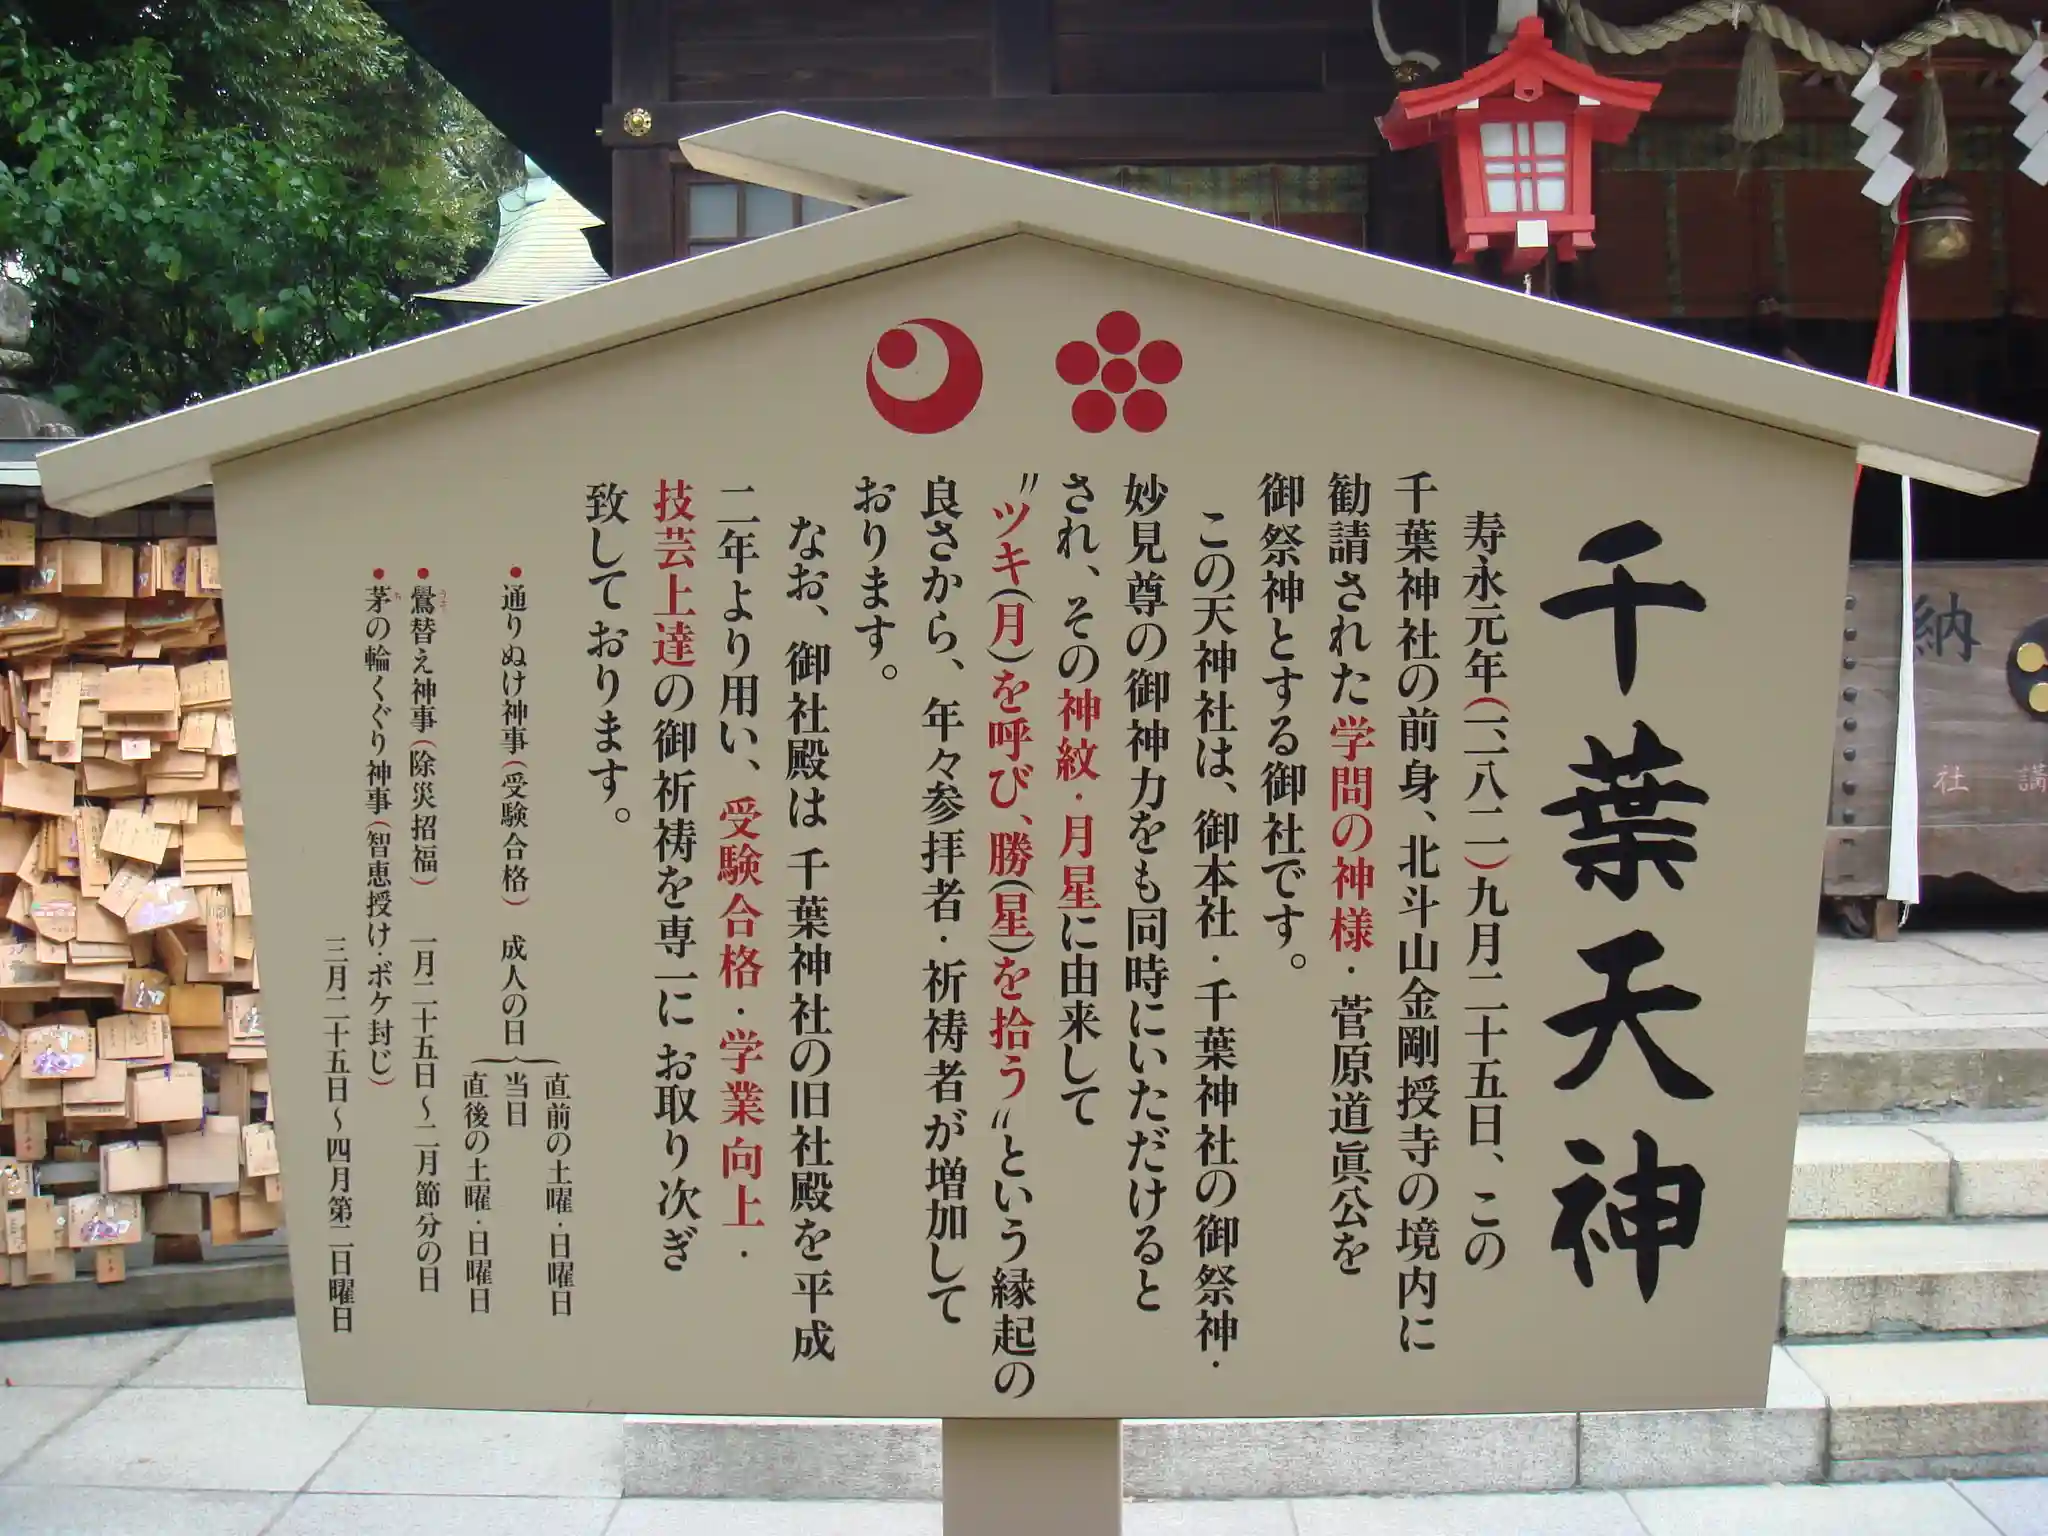 千葉天神
寿永元年(一一八二)九月二十五日、この
千葉神社の前身、北斗山金剛授寺の境内に
勧請された学問の神様・菅原道眞公を
御祭神とする御社です。
この天神社は、御本社・千葉神社の御祭神・
妙見尊の御神力をも同時にいただけると
され、その神紋・月星に由来して
〝ツキ(月)を呼び、勝(星)を拾う〟という縁起の
良さから、年々参拝者・祈祷者が増加して
おります。
なお、御社殿は千葉神社の旧社殿を平成
二年より用い、受験合格・学業向上・
技芸上達の御祈祷を専一にお取り次ぎ
致しております。
●通りぬけ神事(受験合格) 成人の日
直前の土曜・日曜日
当日
直後の土曜・日曜日
●鷽替え神事(除災招福) 一月二十五日～二月節分の日
うそ
●茅の輪くぐり神事(智恵授け・ボケ封じ)
ち
三月二十五日～四月第二日曜日
納
社
講